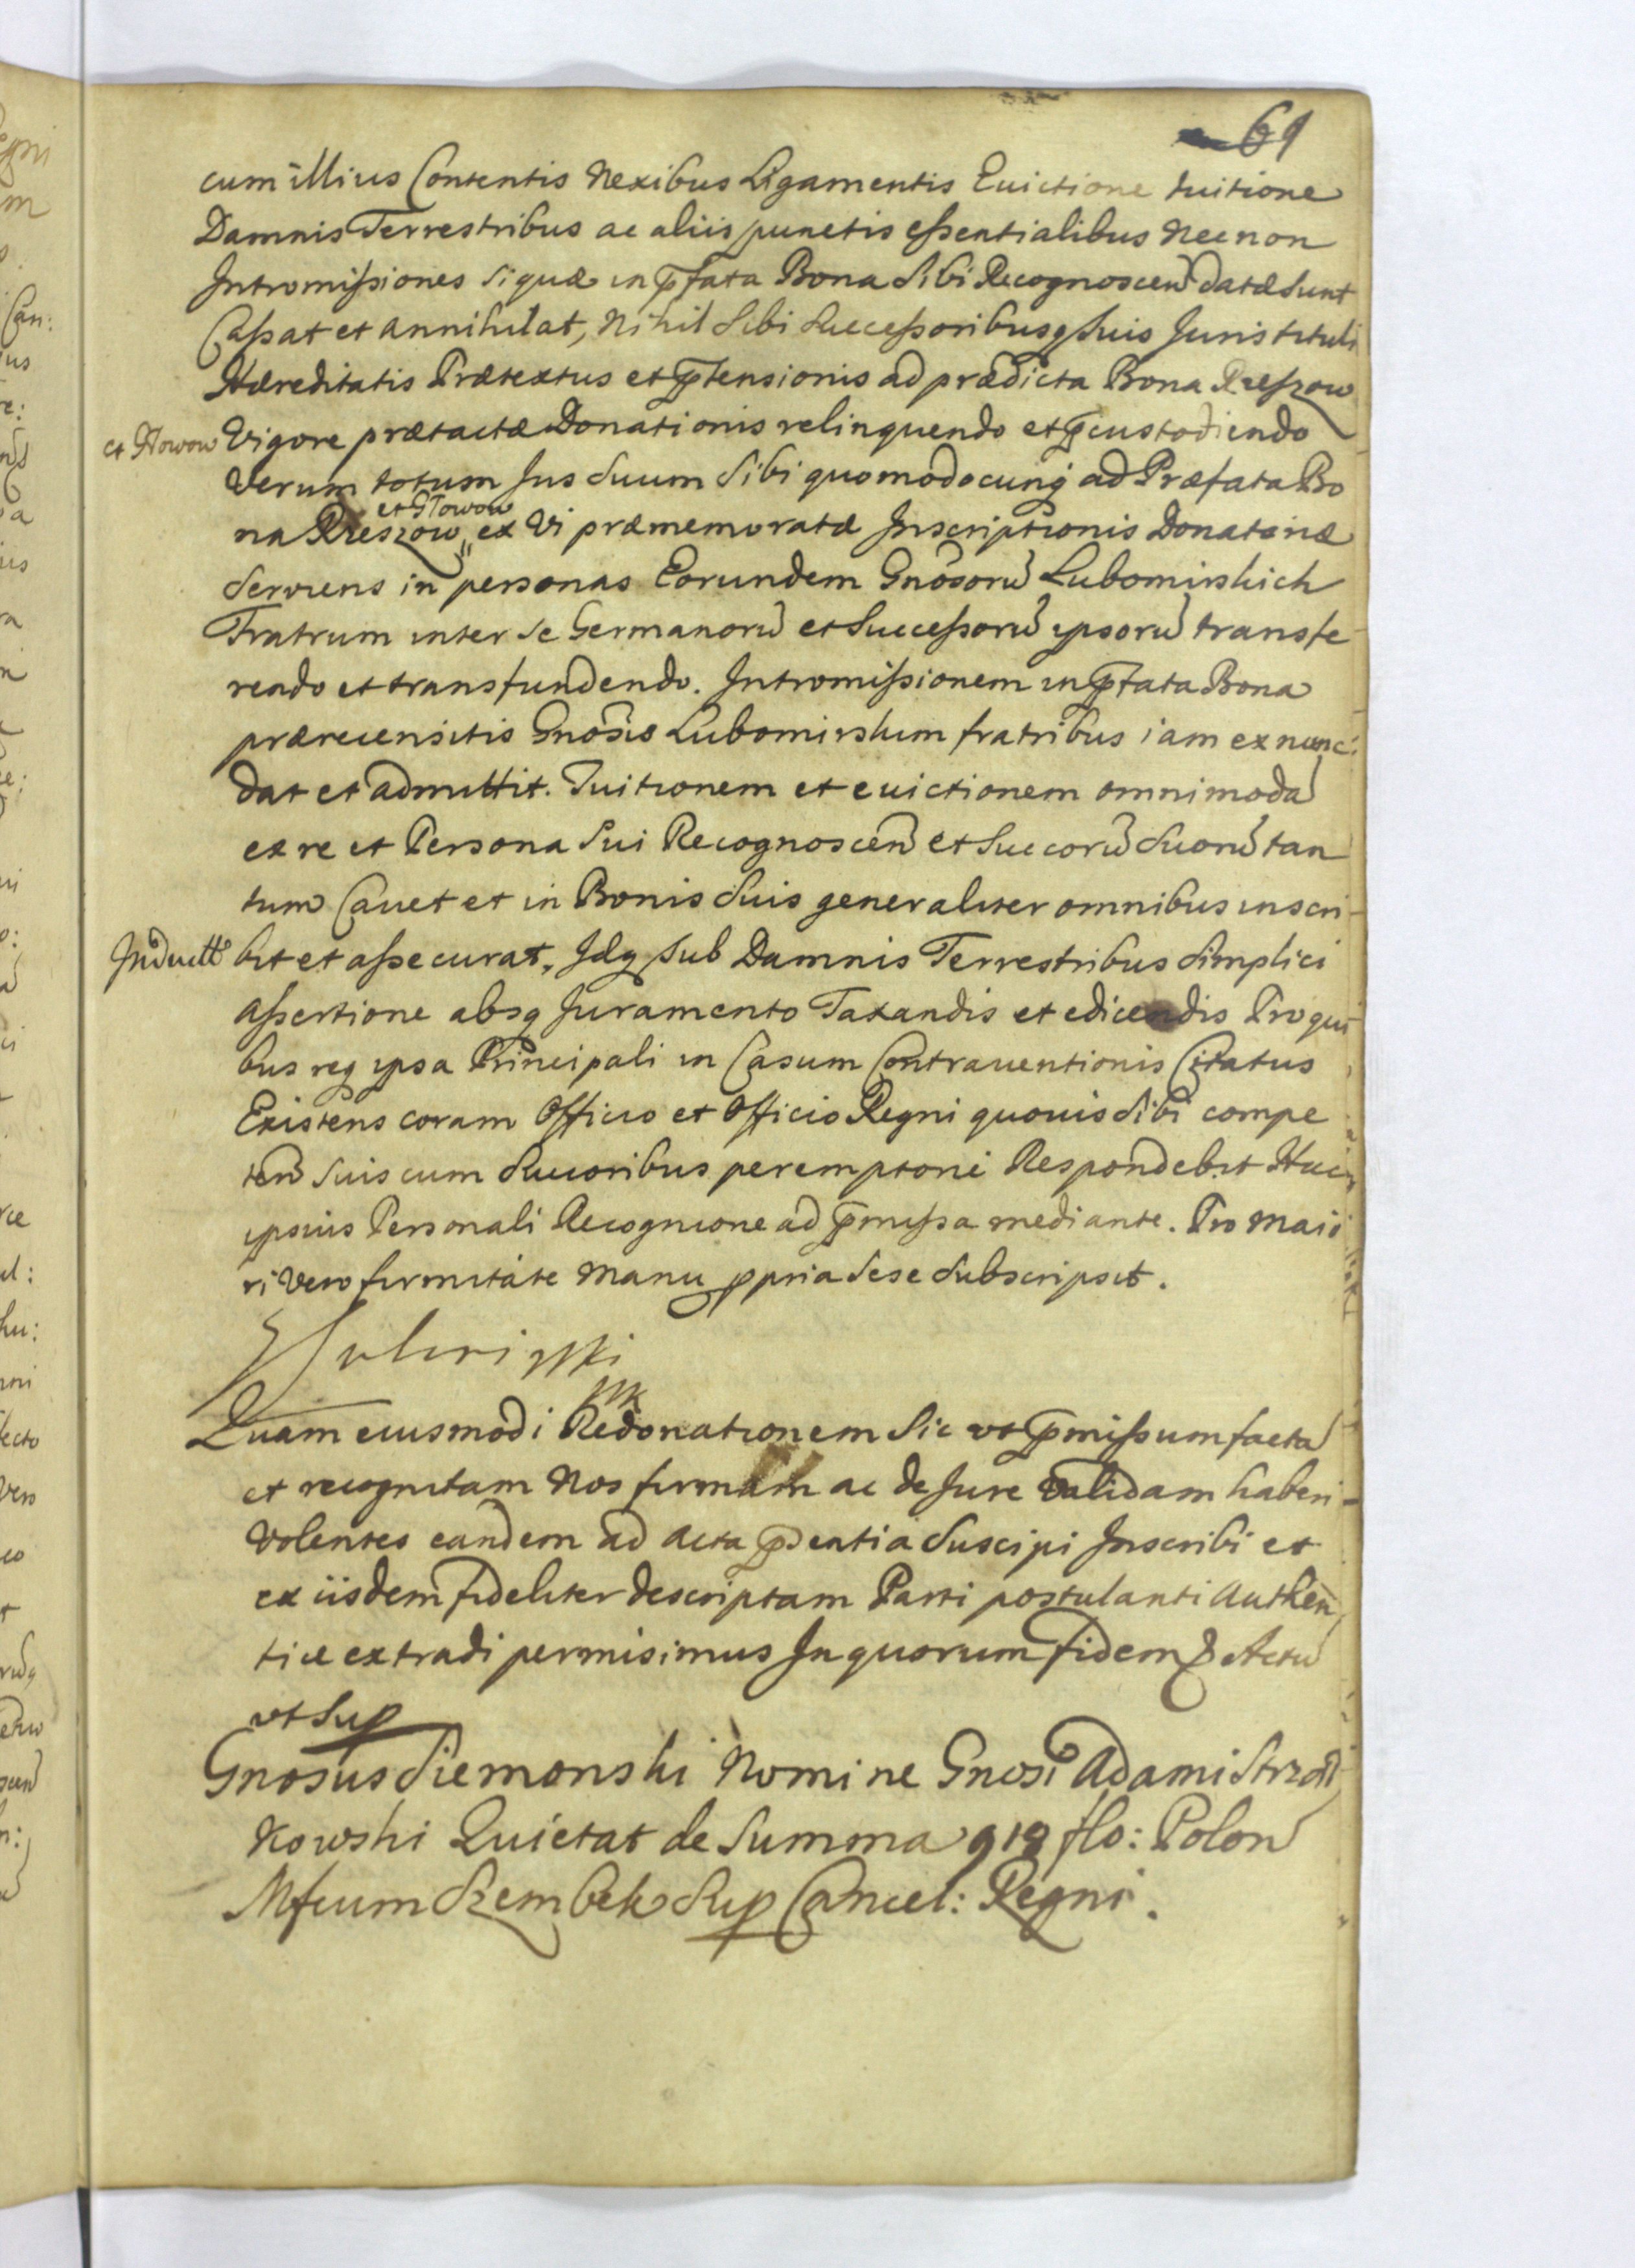 61
cum illius Contentis Nexibus Ligamentis Euictione tuitione
Damnis Terrestribus ac aliis punctis essentialibus Necnon
Intromissiones siquæ in p̄fata Bona Sibi Recognoscen̄ datæ sunt
Cassat et annihilat, Nihil Sibi Successoribusq Suis Juris tituli
Hæreditatis Prætextus et p̄tensionis ad prædicta Bona Rzeszow
et Głowow Vigore prætactæ Donationis relinquendo et p̄custodiendo
Verum totum Jus Suum Sibi quomodocunq ad Præfata Bo
et Głowow
na Rzeszow ex Vi præmemoratæ Inscriptionis Donatoriæ
Seruiens in personas Eorundem Gnosorū Lubomirskich
Fratrum inter Se Germanorū et Successorū ipsorū transfe
rendo et transfundendo. Intromissionem in p̄fata Bona
prærecensitis Gnosis Lubomirskim fratribus iam ex nunc
dat et admittit. Tuitionem et euictionem omnimodā
ex re et Persona Sui Recognoscen̄ et Succorū Suorū tan
tum Cauet et in Bonis Suis generaliter omnibus inscri-
bit et assecurat, Idq sub Damnis Terrestribus Simplici
assertione absq Juramento Taxandis et edicendis Pro qui
bus req ipsa Principali in Casum Contrauentionis Citatus
Existens coram Officio et Officio Regni quouis Sibi compe
ten̄ Suis cum Succoribus peremptorie Respondebit Hac
ipsius Personali Recognicione ad p̄missa mediante. Pro maio
ri Vero firmitate Manu ppria Sese Subscripsit.
Quam eiusmodi Redonationem Sic ut p̄missum factā
et recognitam Nos firmam ac de Jure Validam haberi
Volentes eandem ad acta p̄sentia Suscipi Inscribi et
ex iisdem fideliter descriptam Parti postulanti Authen
tice extradi permisimus In quorum fidem & Actū
ut Sup
Gnosus Siemonski Nomine Gnosi Adami Strzał
kowski Quietat de Summa 919 flo: Polon
Mfcum Szembek Sup Cancel: Regni.